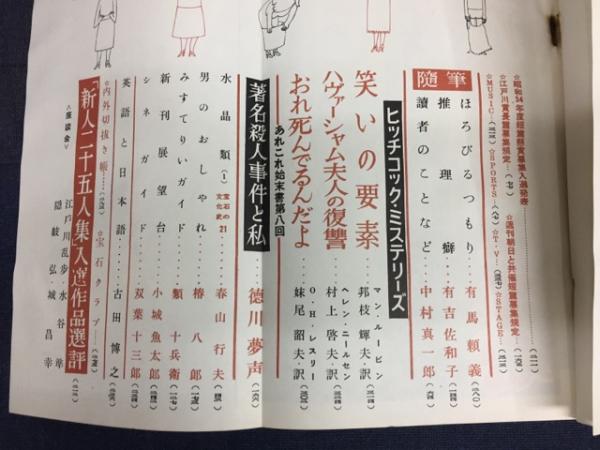 ☆昭和34年度短篇懸賞募集入選発表
☆江戸川賞長篇募集規定
☆週刊朝日と共催短篇募集規定
☆MUSIC
☆SPORTS
☆T・V
☆STAGE
随筆
ほろびるつもり 有馬頼義
推理癖 有吉佐和子
讀者のことなど 中村真一郎
ヒッチコック・ミステリーズ
笑いの要素 マン・ルービン 邦枝輝夫・訳
ハヴァーシャム夫人の復讐 ヘレン・ニールセン 村上啓夫・訳
おれ死んでるんだよ O・H・レスリー 妹尾韶夫・訳
あれこれ始末書第八回
著名殺人事件と私 徳川夢声
水晶類(1) 宝石の文化史21 春山行夫
男のおしゃれ 椿八郎
みすてりいガイド 類十兵衛
新刊展望台 小城魚太郎
シネガイド 双葉十三郎
英語と日本語 古田博之
☆内外切抜き帳
☆宝石クラブ
「新人二十五人集」入選作品選評
<座談会>
江戸川乱歩・水谷準
隠岐弘・城昌幸